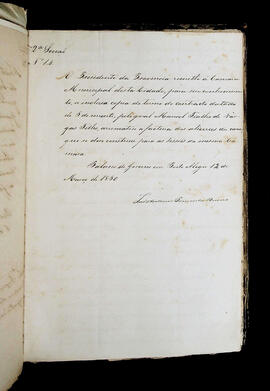 2ª Secção
Nº 14
O Presidente da Provincia remette á Camara
Municipal desta Cidade, para seu conhecimen
to, a inclusa copia do termo de contracto datado
de 8 do corrente, pelo qual Manoel Fialho de Var
gas Filho, arrematou a factura dos
que se dem construir para as da mesma Ca
mara.
Palacio do Governo em Porto Alegre 12 de
Março de 1850